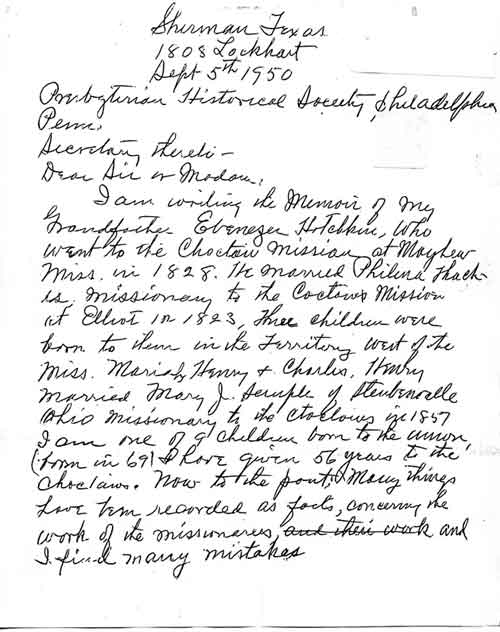 Sherman Texas
1808 Lockhart
Sept 5th 1950
Presbyterian Historical Society, Philadelphia
Penn.
Secretary thereto -
Dear Sir or Madam,
I am writing the Memoir of my
Grandfather Ebenezer Hotchkin, who
went to the Choctaw Mission at Mayhew
Miss. in 1828. He married Philena Thach-
er, missionary to the Coctaws Mission
at Elliot in 1823, three children were
born to them in the Territory west of the
Miss. Mariah, Henry & Charles, Henry
married Mary J. Semple of Steubenville
Ohio Missionary to the in 1857
I am one of 9 children born to the union,
(born in 69) I have given 56 years to the
Choctaws. Now to the point. Many things
have been recorded as facts, concerning the
work of the missionaries, and their work and
I find many mistakes